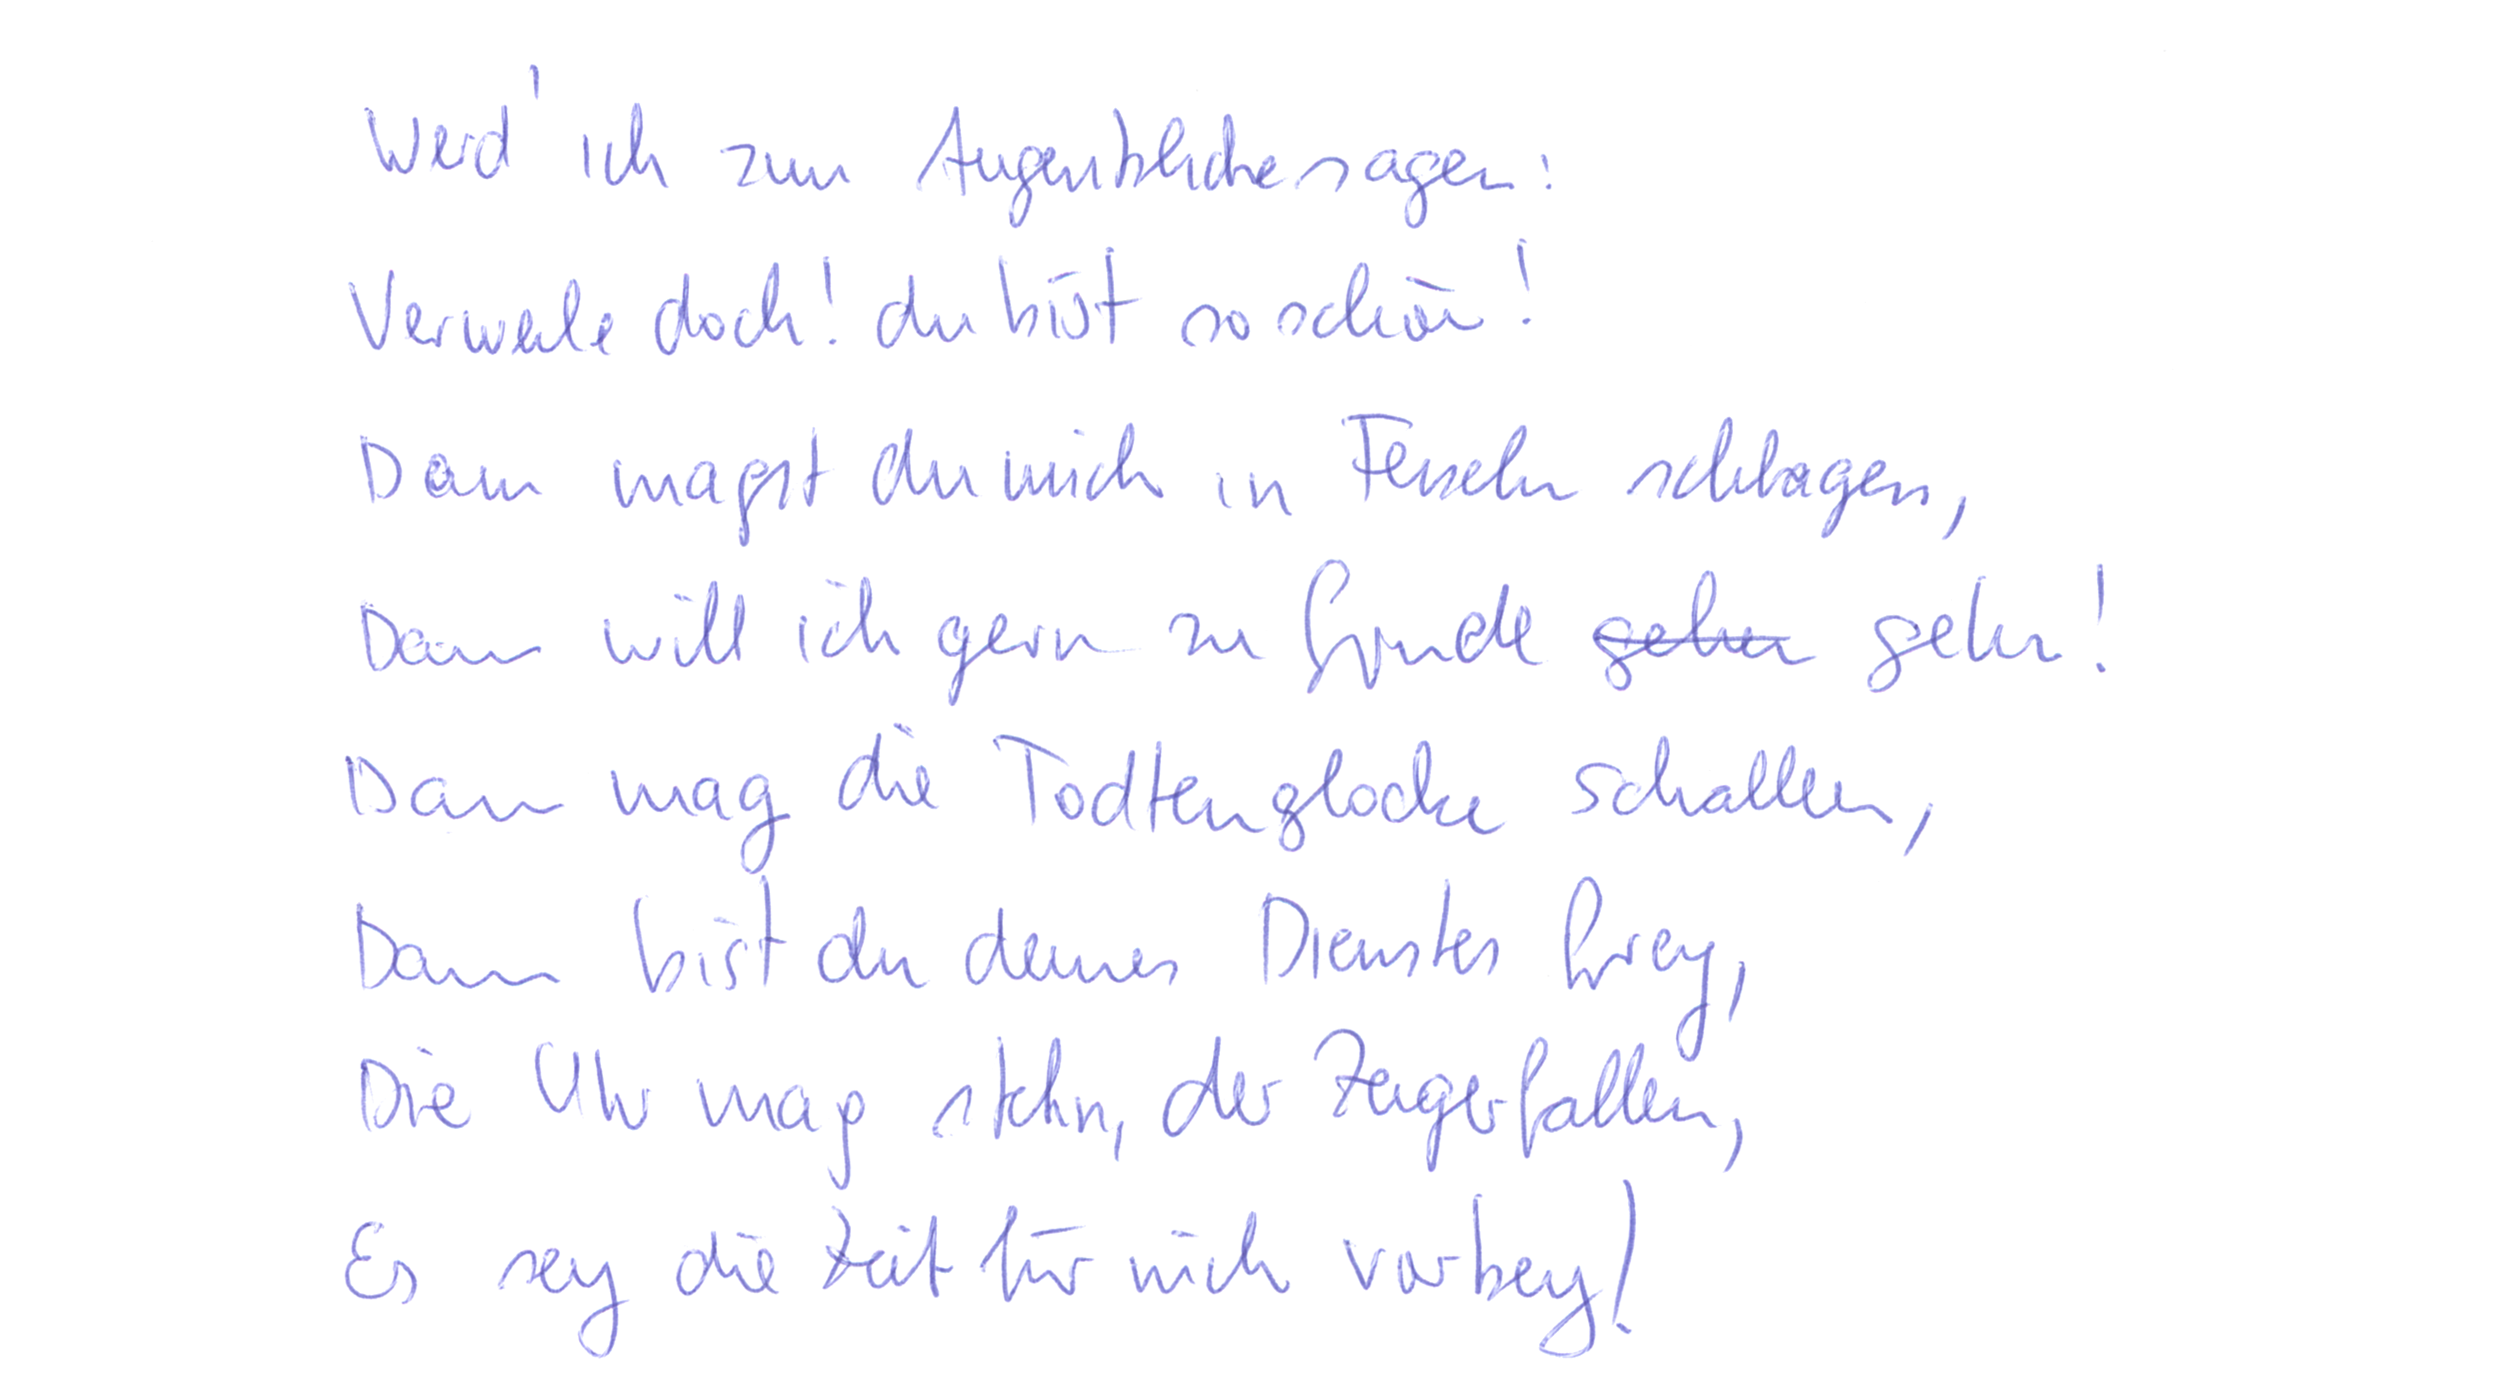 Werd' ich zum Augenblicke sagen:
Verweile doch! du bist so schön!
Dann magst du mich in Fesseln schlagen,
Dann will ich gern zu Grunde gehen gehn!
Dann mag die Todtenglocke schallen,
Dann bist du deines Dienstes frey,
Die Uhr mag stehn, der Zeiger fallen,
Es sey die Zeit für mich vorbey!